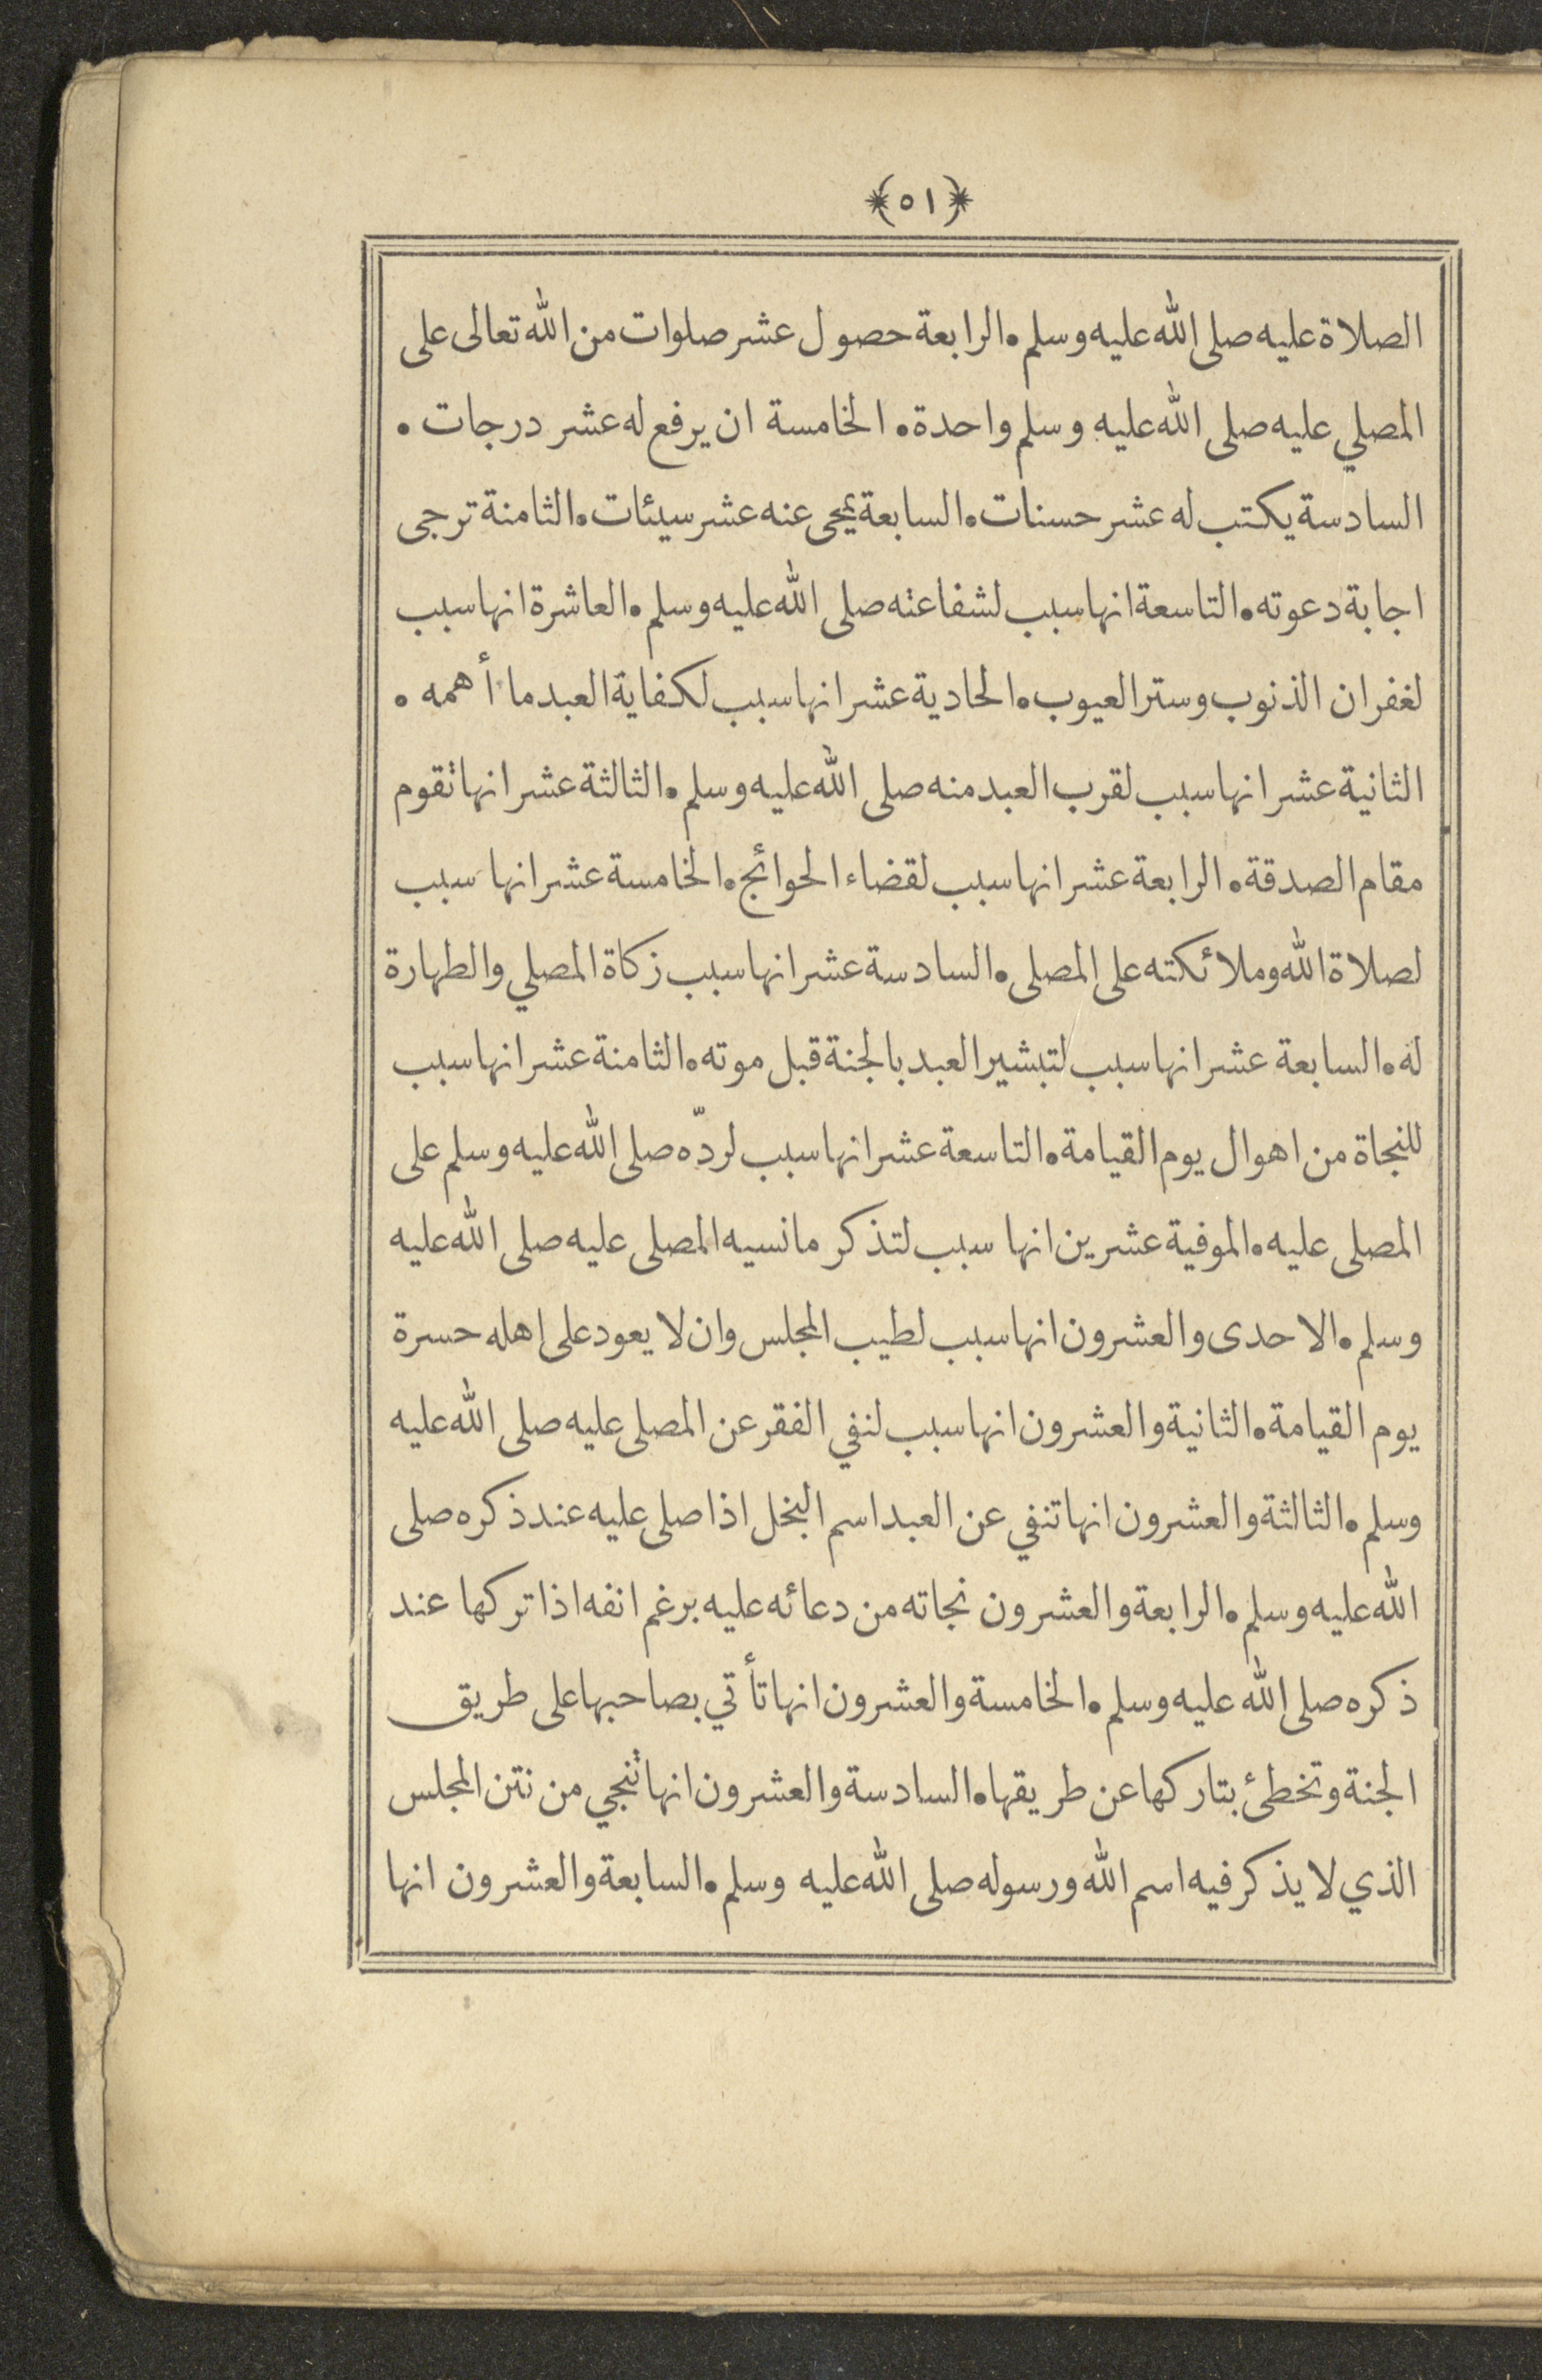 ﴿٥١﴾
الصلاة عليه صلى الله عليه وسلم. الرابعة حصول عشر صلوات من الله تعالى على
المصلي عليه صلى الله عليه وسلم واحدة. الخامسة ان يرفع له عشر درجات.
السادسة يكتب له عشر حسنات. السابعة يمحى عنه عشر سيئات. الثامنة ترجى
اجابة دعوته. التاسعة انها سبب لشفاعته صلى الله عليه وسلم. العاشرة انها سبب
لغفران الذنوب وستر العيوب. الحادية عشر انها سبب لكفاية العبد ما أهمه.
الثانية عشر انها سبب لقرب العبد منه صلى الله عليه وسلم. الثالثة عشر انها تقوم
مقام الصدقة. الرابعة عشر انها سبب لقضاء الحوائج. الخامسة عشر انها سبب
لصلاة الله وملائكته على المصلى. السادسة عشر انها سبب زكاة المصلي والطهارة
له. السابعة عشر انها سبب لتبشير العبد بالجنة قبل موته. الثامنة عشر انها سبب
للنجاة من اهوال يوم القيامة. التاسعة عشر انها سبب لردّه صلى الله عليه وسلم على
المصلى عليه. الموفية عشرين انها سبب لتذكر ما نسيه المصلى عليه صلى الله عليه
وسلم. الاحدى والعشرون انها سبب لطيب المجلس وان لا يعود على اهله حسرة
يوم القيامة. الثانية والعشرون انها سبب لنفي الفقر عن المصلى عليه صلى الله عليه
وسلم. الثالثة والعشرون انها تنفي عن العبد اسم البخل اذا صلى عليه عند ذكره صلى
الله عليه وسلم. الرابعة والعشرون نجاته من دعائه عليه برغم انفه اذا تركها عند
ذكره صلى الله عليه وسلم. الخامسة والعشرون انها تأتي بصاحبها على طريق
الجنة وتخطئ بتاركها عن طريقها. السادسة والعشرون انها تنجي من نتن المجلس
الذي لا يذكر فيه اسم الله ورسوله صلى الله عليه وسلم. السابعة والعشرون انها